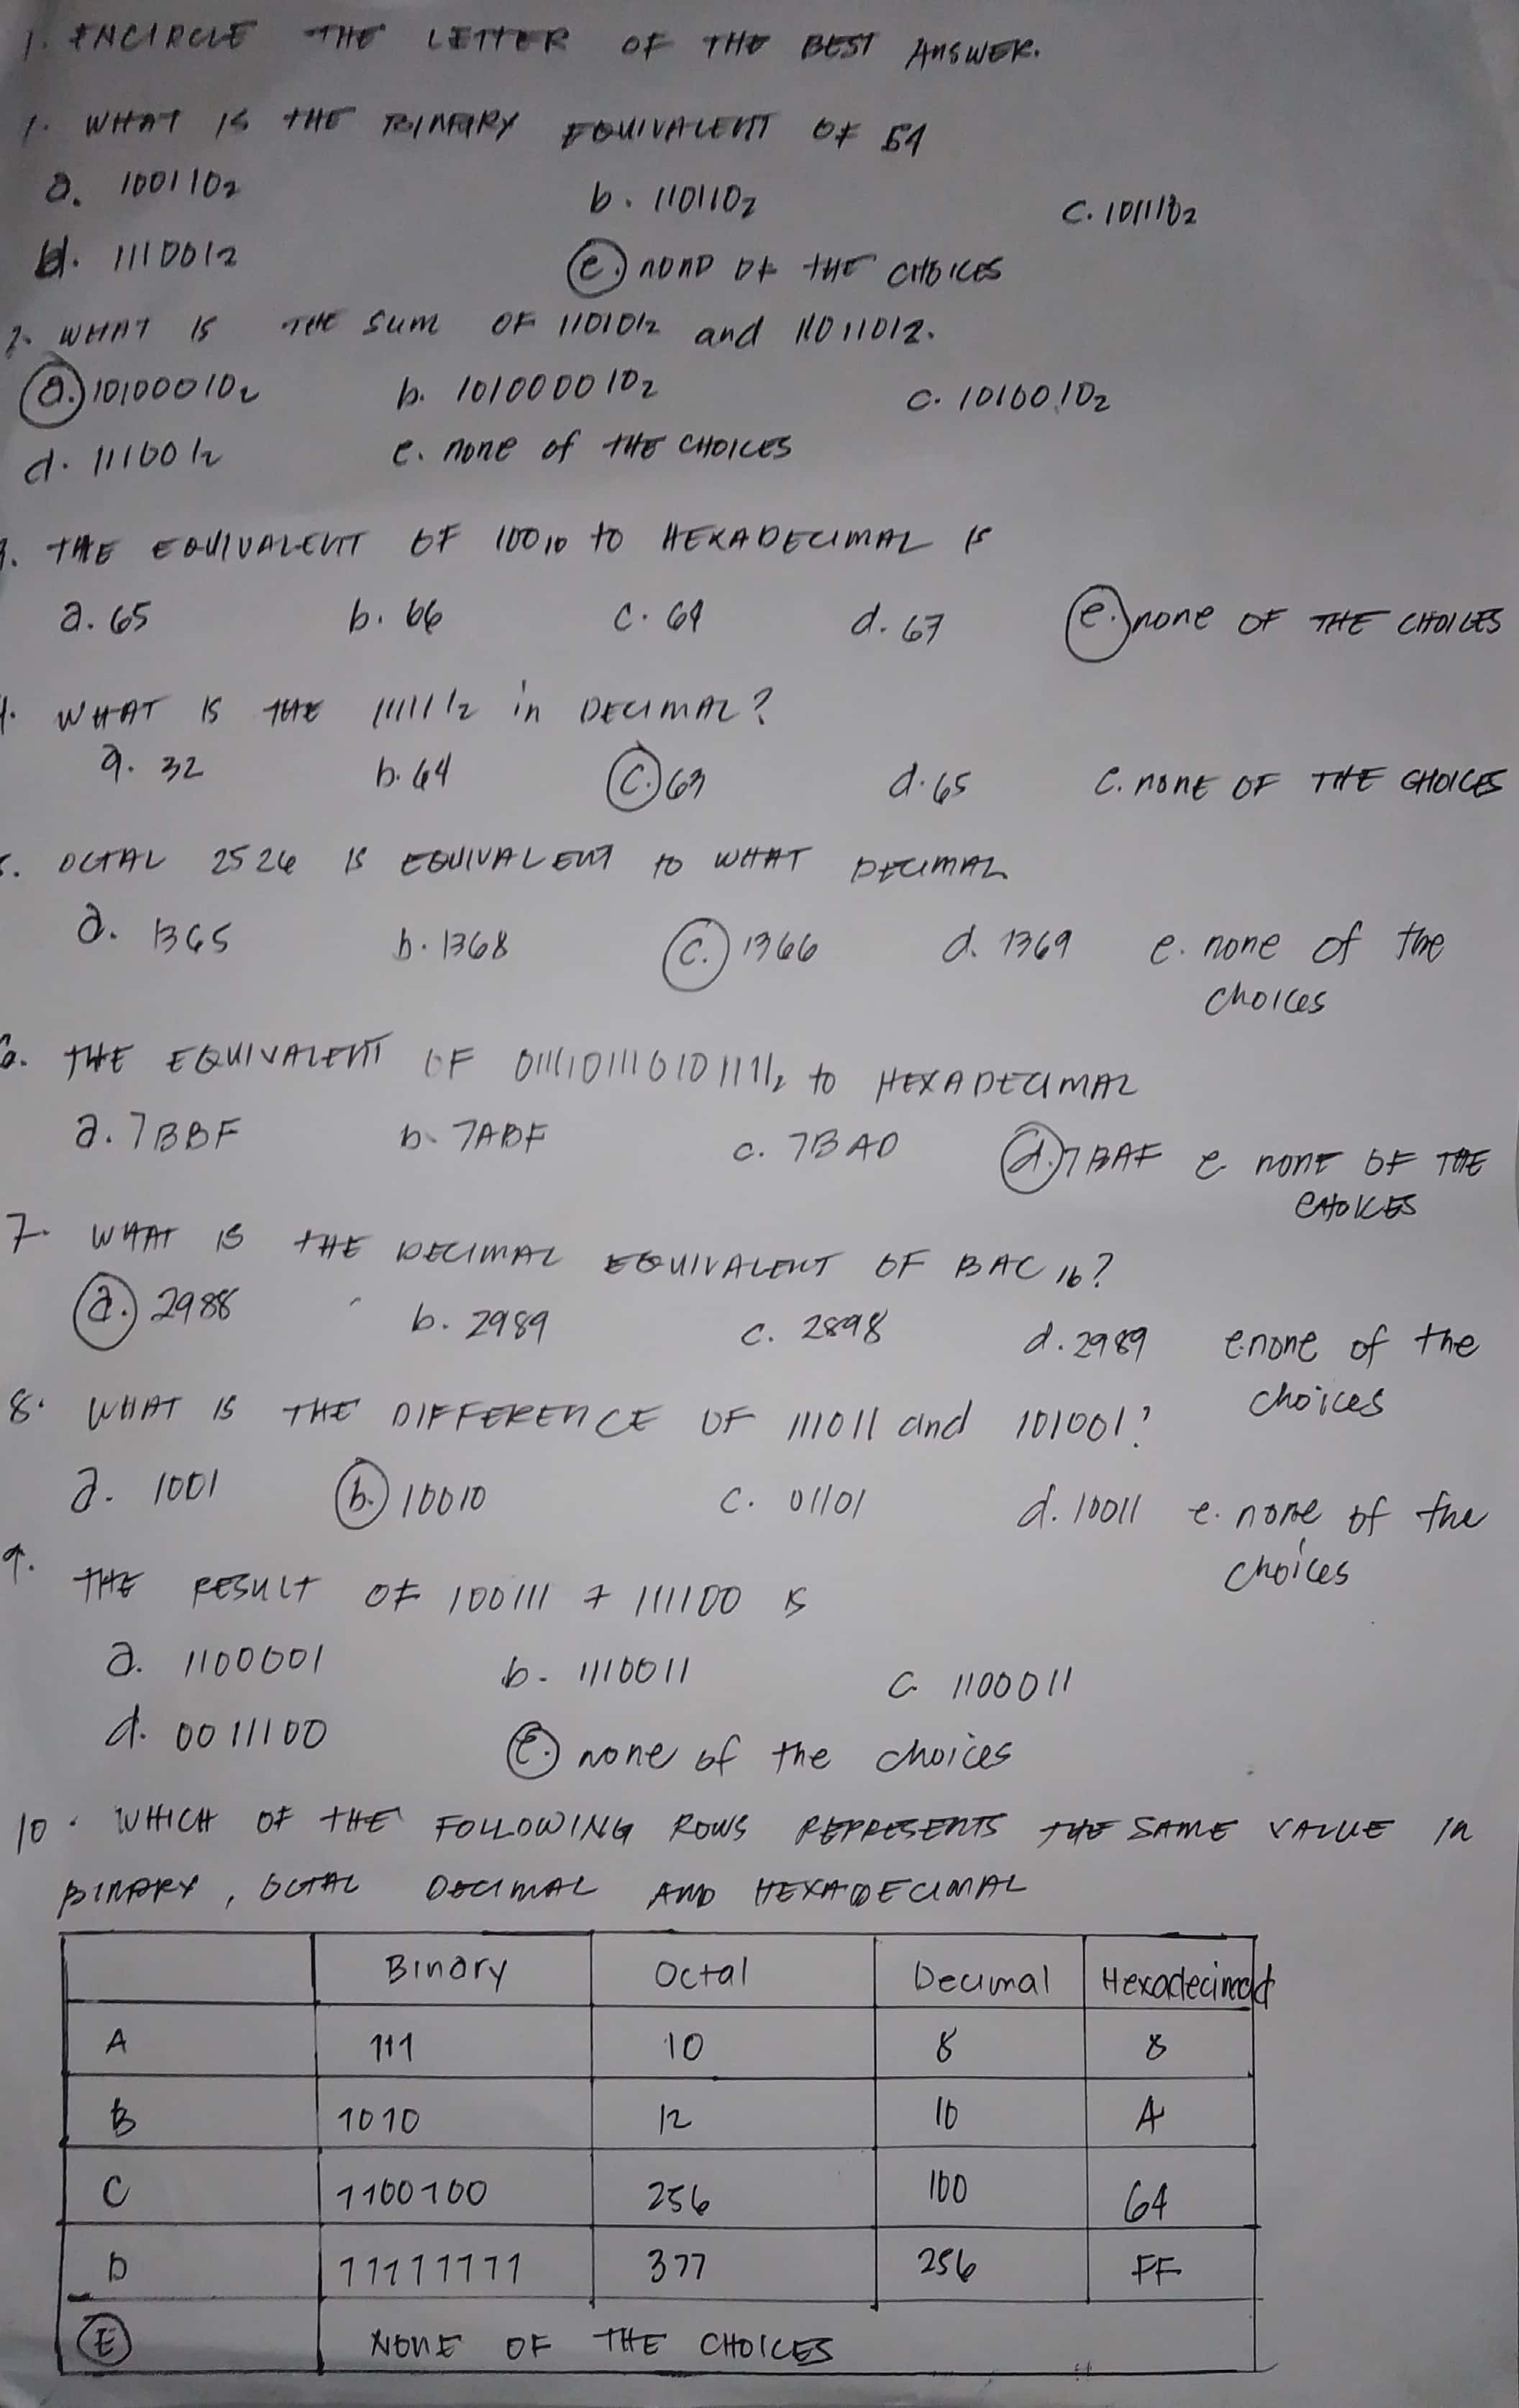 1. ENCIRCLE THE LETTER OF THE BEST ANSWER.
1. WHAT IS THE BINARY EQUIVALENT OF 54
a. 100110₂ b. 110110₂ c. 101110₂
d. 111001₂ e. NONE OF THE CHOICES
2. WHAT IS THE SUM OF 110101₂ and 1101101₂.
a. 10100010₂ b. 101000010₂ c. 1010010₂
d. 111001₂ e. none of THE CHOICES
3. THE EQUIVALENT OF 100₁₀ to HEXADECIMAL is
a. 65 b. 66 c. 64 d. 67 e. none OF THE CHOICES
4. WHAT IS THE 111111₂ in DECIMAL?
a. 32 b. 64 c. 63 d. 65 e. NONE OF THE CHOICES
5. OCTAL 2526 IS EQUIVALENT to WHAT DECIMAL
a. 1365 b. 1368 c. 1366 d. 1369 e. none of the
choices
6. THE EQUIVALENT OF 0111101110101111₂ to HEXADECIMAL
a. 7BBF b. 7ABF c. 7BAD d. 7BAF e NONE OF THE
CHOICES
7. WHAT IS THE DECIMAL EQUIVALENT OF BAC₁₆?
a. 2988 b. 2989 c. 2898 d. 2989 e.none of the
choices
8. WHAT IS THE DIFFERENCE OF 111011 and 101001?
a. 1001 b. 10010 c. 01101 d. 10011 e. none of the
choices
9. THE RESULT OF 100111 + 111100 is
a. 1100001 b. 1110011 c 1100011
d. 0011100 e. none of the choices
10. WHICH OF THE FOLLOWING ROWS REPRESENTS THE SAME VALUE in
BINARY, OCTAL DECIMAL AND HEXADECIMAL
Binary Octal Decimal Hexadecimal
A 111 10 8 8
B 1010 12 10 A
C 1100100 256 100 64
D 11111111 377 256 FF
E NONE OF THE CHOICES